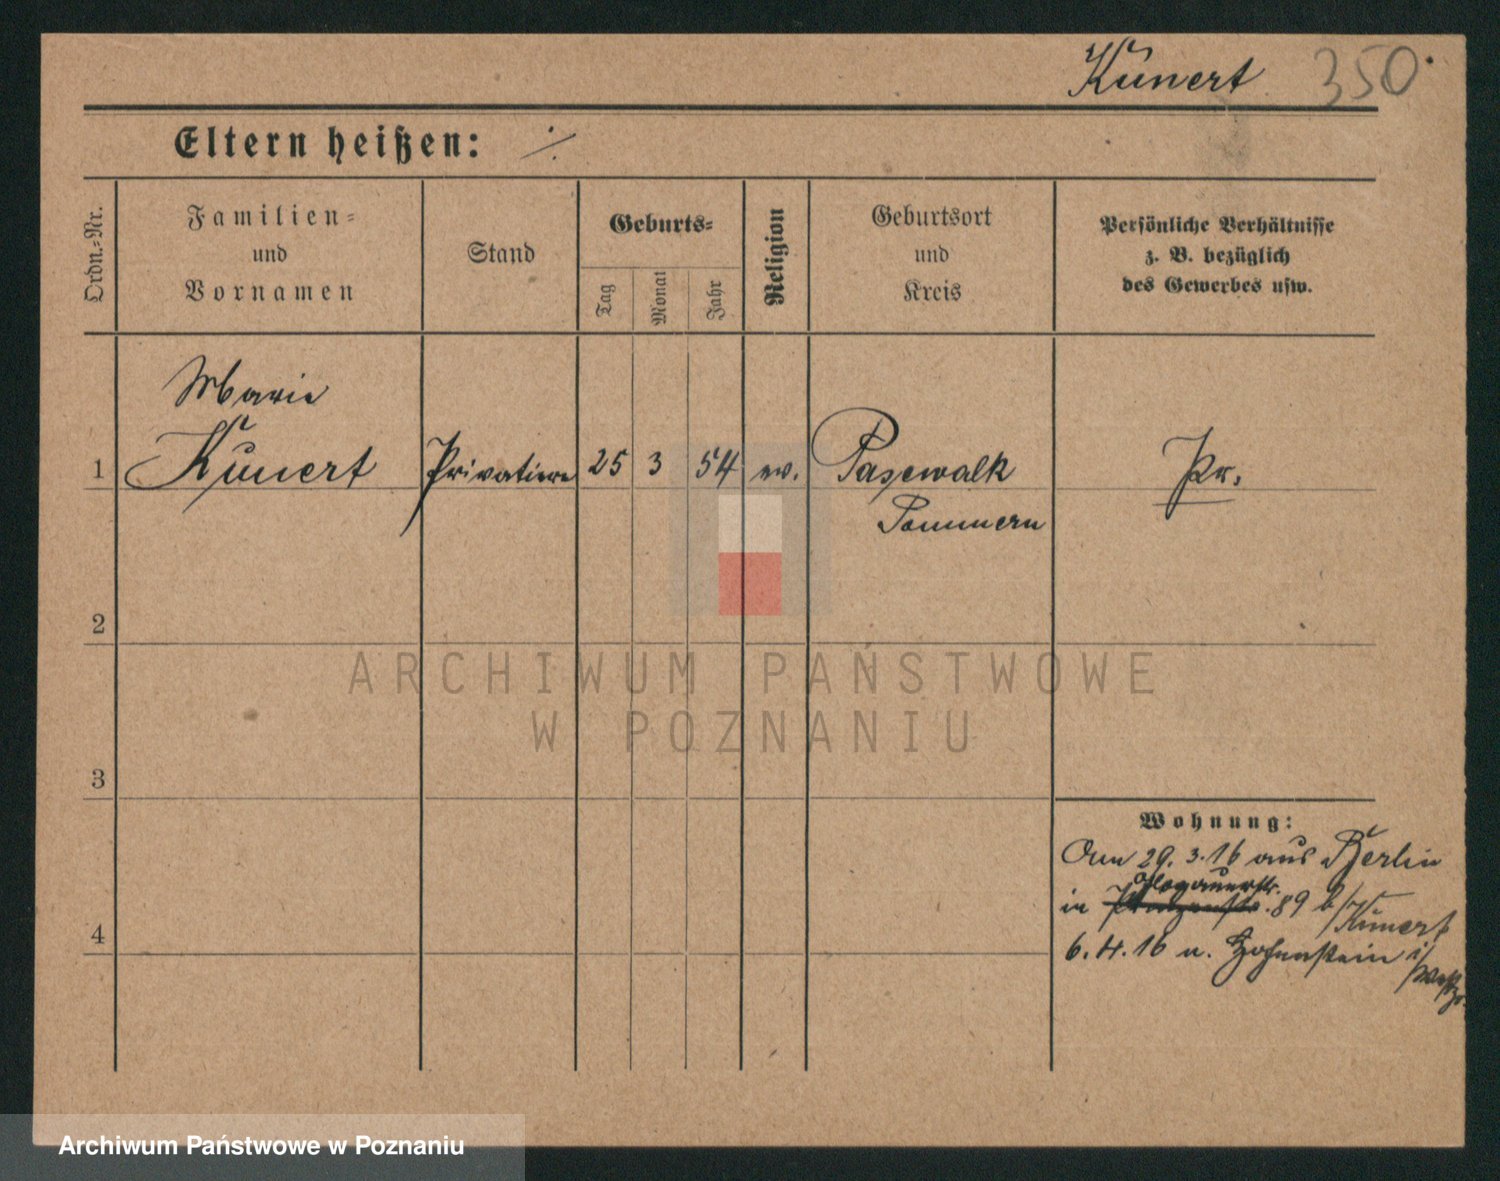 Kunert 350.
Eltern heißen: ·/·
Ordn.=Nr.
Familien=
und
Vornamen
Stand
Geburts=
Tag
Monat
Jahr
Religion
Geburtsort
und
Kreis
Persönliche Verhältnisse
z. B. bezüglich
des Gewerbes usw.
Marie
1 Kunert Privatiere 25 3 54 ev. Pasewalk Pr.
Pommern
2
3
4
Wohnung:
Am 29. 3. 16 aus Berlin
Glogauerstr.
in 89 b/Kunert
6. 4. 16 n. Hohenstein i/
Westpr.
ARCHIWUM PAŃSTWOWE
W POZNANIU
Archiwum Państwowe w Poznaniu